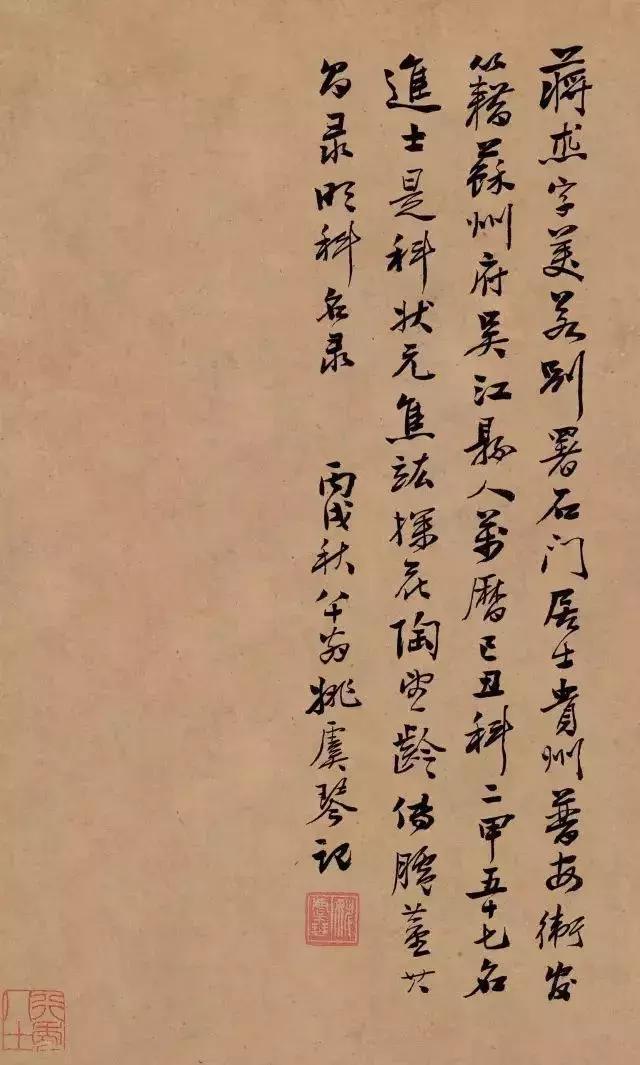 蔣杰字美若別署石门居士貴州普安衛官
籍蘇州府吳江縣人萬曆己丑科二甲五十七名
進士是科狀元焦竑探花陶望齡傳臚董其
昌录明科名录 丙戌秋八十翁姚虞琴记